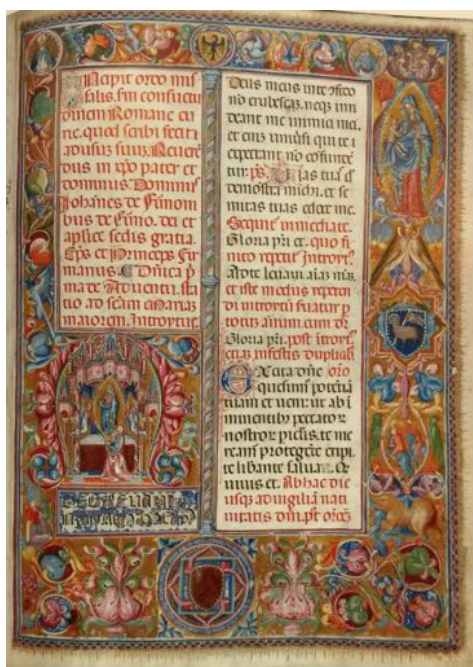 Ncipit ordo mis
salis. sm consuetu
dinem Romane cu
rie. quod scribi fecit
ad usuz suuz. Reuerē
dus in xpo pater et
dominus. Dominus
Johānes de Firmoni
bus de Firmo. dei et
aplice sedis gratia.
Eps et Princeps Fir
manus. Dnica p
ma de Aduentu. sta
tio ad scam Mariaz
maiorem. Introitus.
Deus meus in te cōfido
nō erubescaz. neqz irri
deant me inimici mei.
et eniz uniusi qui te
expectant nō cōfundē
tur. ps. Uias tuas
demōstra michi. et se
mitas tuas edoce me.
Sequitur immediate.
Gloria pri et. quo fi
nito repetit Introit.
Ad te leuaui aīaz meā.
et iste modus repeten
di introitus seruatur p
totuz annum. cum dr
Gloria pri. post introit.
etiaz in festis duplicib
Excita dne oro
quesumus potētiā
tuam et ueni: ut ab i
minentibz peccatoz
nostroz piclis. te me
reamur protegēte eripi.
te liberante saluari. Q
uiuis et. Ab hac die
usqz ad uigiliā nati
uitatis dni. pt orōes